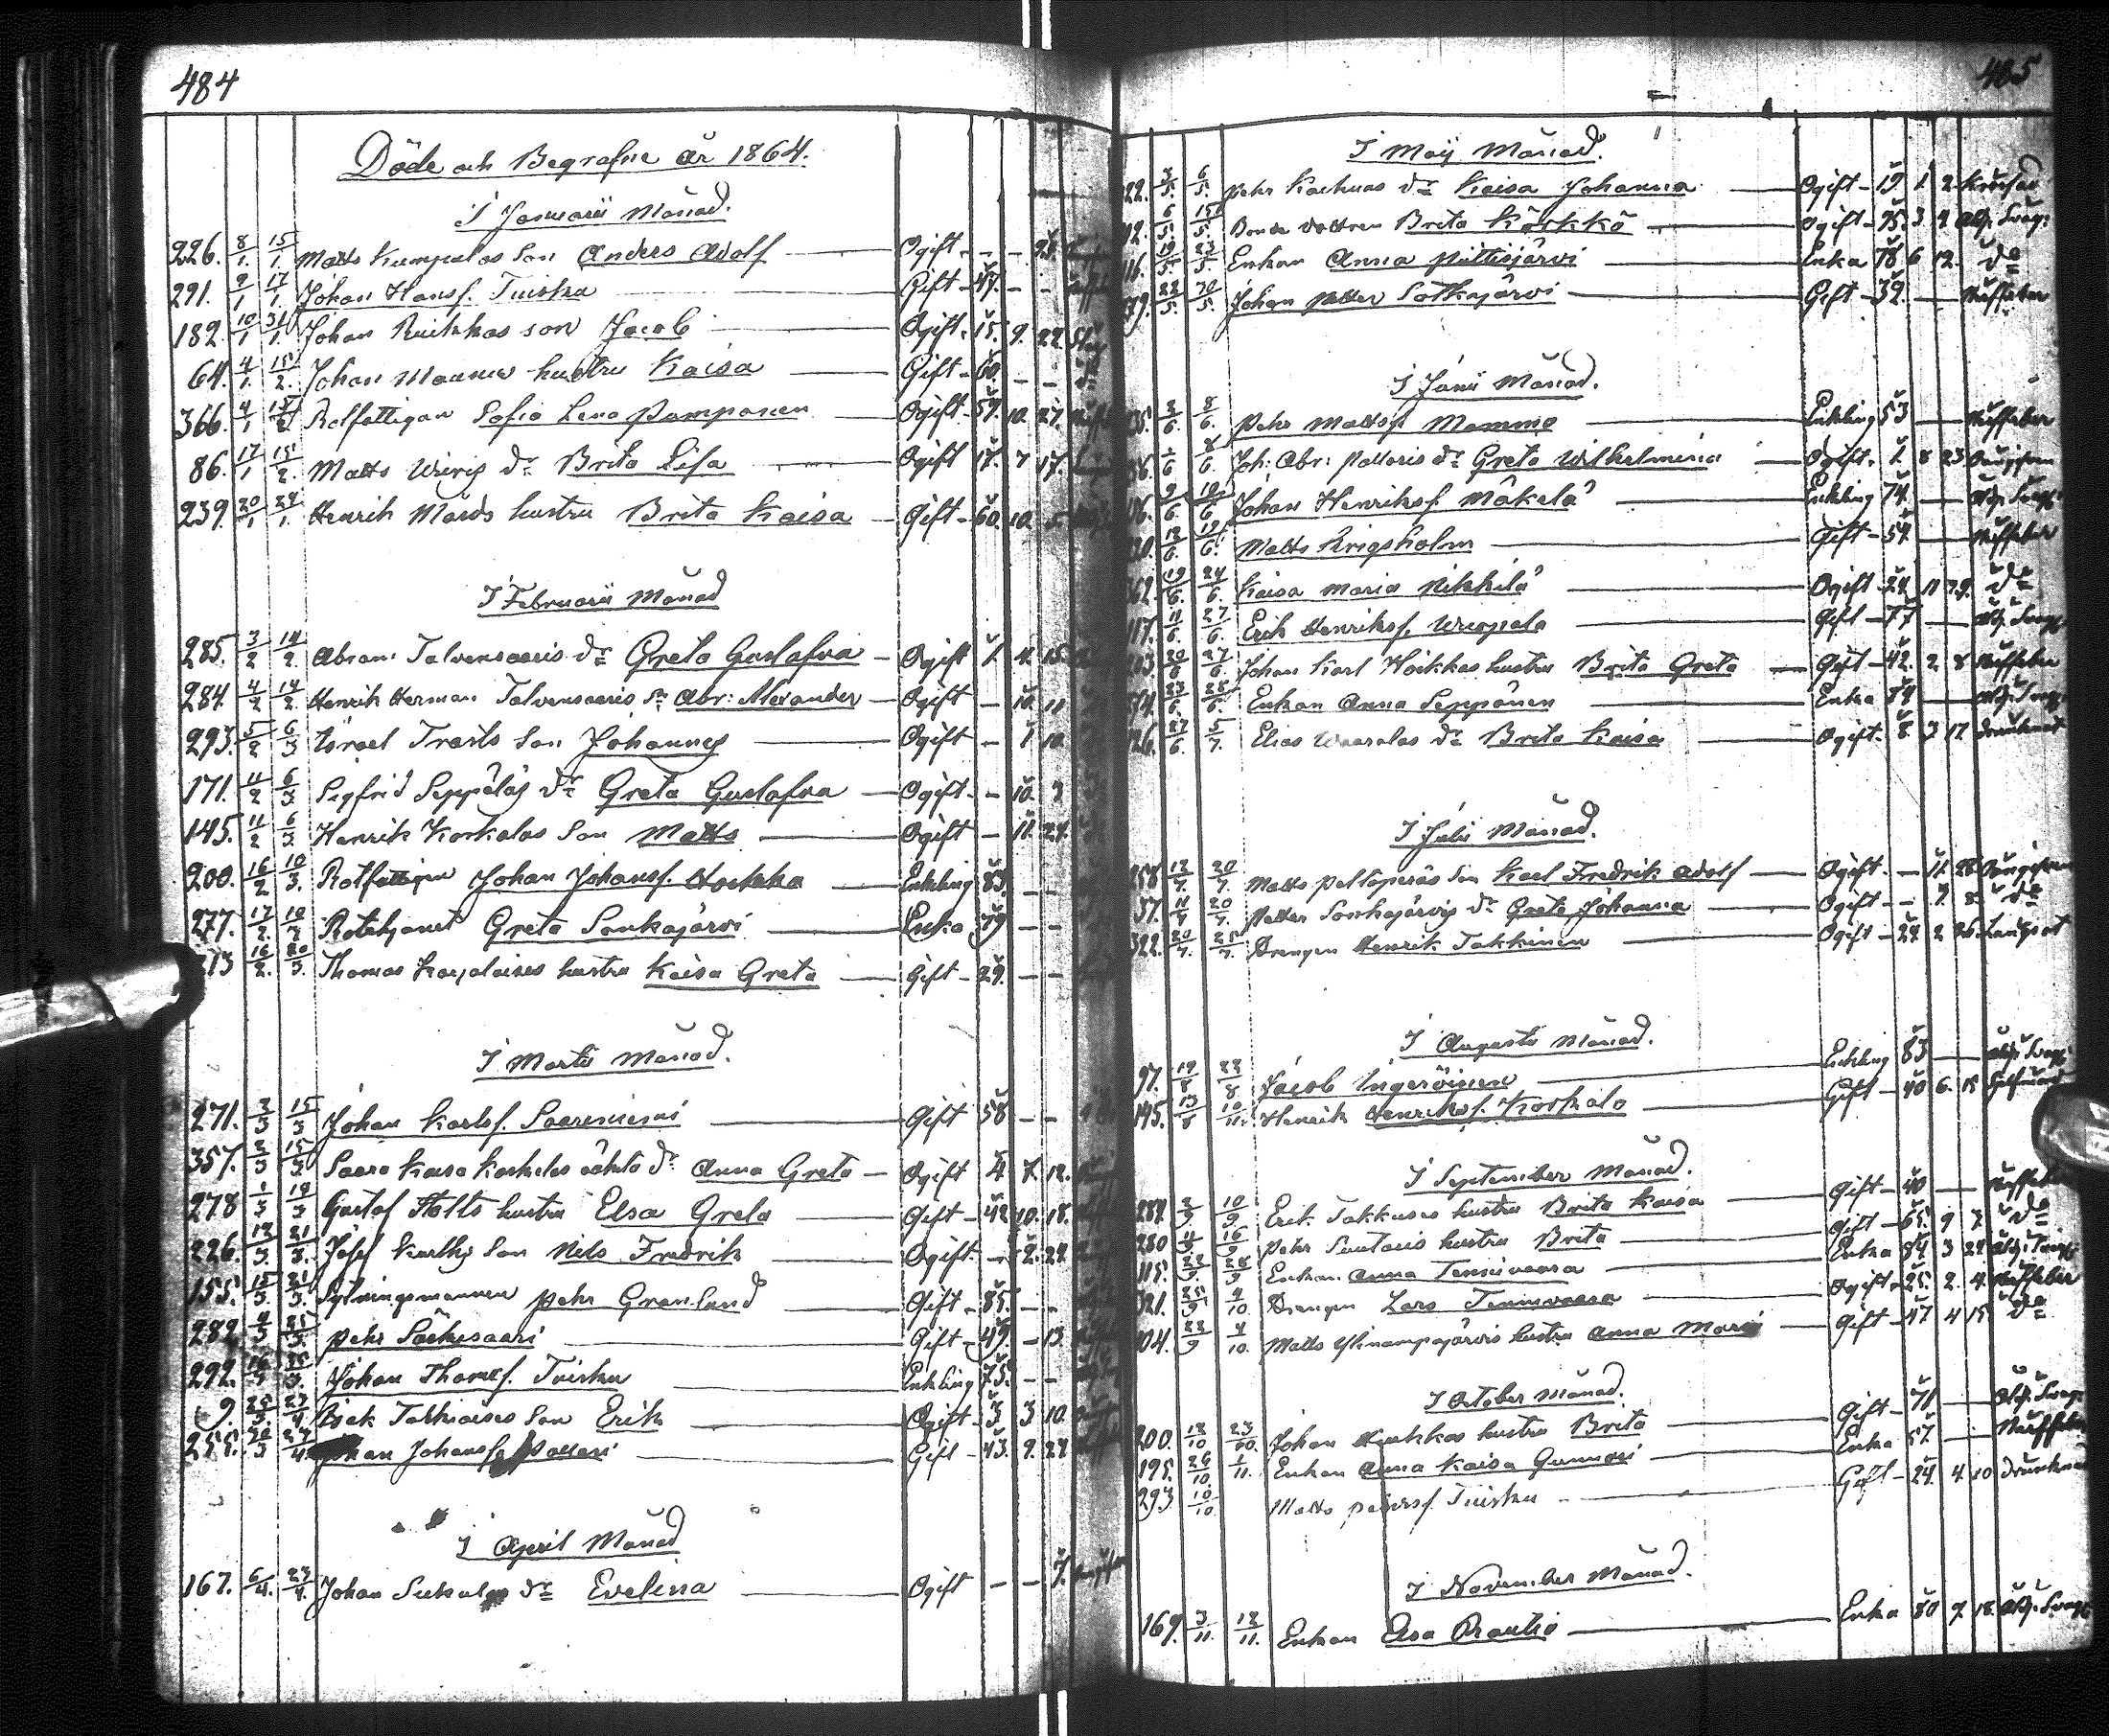 484
Döde och Begrafne år 1864.
I Januarii Månad.
226. 8/1. 15/1. Matts Kumpulas Son Anders Adolf — Ogift - - - 25.
291. 9/1 17/1. Johan Hansf. Tuisku — Gift - 47. - -
182. 10/1 31/1. Johan Ruikkas son Jacob — Ogift - 15. 9. 22.
64. 4/1. 15/2. Johan Maunus hustru Kaisa — Gift - 60. - -
366. 4/1 15/2 Rotfattigan Sofia Lena Pamponen — Ogift - 59. 10. 27.
86. 17/1 15/2. Matts Wieris dr Brita Lisa — Ogift 17. 7 17.
239. 20/1 24/1. Henrik Mårds hustru Brita Kaisa — Gift - 60. 10. 5.
I Februarii Månad
285. 3/2 14/2. Abram Talvensaaris dr Greta Gustafva — Ogift 1. 4. 15.
284. 4/2 14/2. Henrik Herman Talvensaaris Sn Abr: Alexander — Ogift - 10. 11
293. 5/2 6/3 Israel Trasts Son Johannes — Ogift - 1 10.
171. 11/2 6/3 Sigfrid Seppäläs dr Greta Gustafva — Ogift - - 10. 9
145. 11/2 6/3 Henrik Korkalos Son Matts — Ogift - 11. 24.
200. 16/2 10/3. Rotfattigen Johan Johansf. Hoikka — Enkling 83. - -
277. 17/2. 10/3 Rotehjonet Greta Sonkajärvi — Enka 79 - -
213 16/2. 20/3. Thomas Karjalaises hustru Kaisa Greta — Gift - 29. - -
I Martii Månad.
271. 2/3 15/3 Johan Karlsf. Saareniemi — Gift 58 - -
357. 2/3 15/3. Saara Kaisa Koskelas oäkta dr Anna Greta — Ogift 4 7. 12.
278 1/3 19/3 Gustaf Holts hustru Elsa Greta — Gift - 42 10. 18.
226. 12/3 21/3. Josef Kurthis Son Nils Fredrik — Ogift. - 2. 22
155. 15/3 21/3. Sytningsmannen Pehr Granlund — Gift - 85. - -
282. 9/3 25/3. Pehr Säkesaari — Gift - 49. - 13.
292. 16/3 25/3. Johan Thomsf. Tuisku — Enkling 75. - -
9. 29/3. 23/4 Isak Takkinens Son Erik — Ogift - 3 3 10.
255. 30/3 23/4. Johan Johansf. Pallari — Gift - 43. 9. 27
I April Månad
167. 6/4. 23/4. Johan Siekulas dr Evelina — Ogift - - 7.
485
I Maij Månad.
22. 3/5. 6/5. Pehr Kaihuas dr Kaisa Johanna — Ogift - 19 1 2
12. 6/5. 15/5. Bonde dottren Brita Körkkö — Ogift - 75. 3 4 Åldr. Svag:
116. 19/5. 23/5. Enkan Anna Püttisjärvi — Enka 78 6 12. do
79. 22/5. 30/5. Johan Petter Sotkajärvi — Gift - 39. — Nervfeber
I Junii Månad.
35. 3/6. 8/6. Pehr Mattsf. Mommo — Enkling 53 — Nervfeber
36. 8/6. Joh: Abr: Pallaris dr Greta Wilhelmina — Ogift - 1. 8 23
16. 9/6. 19/6 Johan Henriksf. Mäkelä — Enkling 74. — Åldr. Svagh:
20. 12/6. 19/6. Matts Krigsholm — Gift - 59. — Nervfeber
362. 19/6. 24/6. Kaisa Maria Nikkilä — Ogift - 24. 11 29. do
117. 11/6. 27/6. Erik Henriksf. Uripala — Gift - 77 — Åldr. Svagh:
203. 20/6 27/6. Johan Karl Hoikkas hustru Brita Greta — Gift - 42. 2 8 Nervfeber
94. 23/6. 28/6. Enkan Anna Seppänen — Enka 84 — Åldr. Svagh:
126. 27/6. 5/7. Elias Waaralas dr Brita Kaisa — Ogift - 8. 3 17 Drunknat
I Julii Månad.
258. 12/7. 20/7. Matts Peltoperäs Son Karl Fredrik Adolf — Ogift - - 11. 28
37. 11/7 20/7. Petter Sonkajärvis dr Greta Johanna — Ogift - - 7. 8. do
322. 20/7. 25/7. Drengen Henrik Takkinen — Ogift - 24. 2 26. Lungsot
I Augusti Månad.
97. 19/8 28/8 Jacob Ingeröinen — Enkling 83 — Åldr. Svagh:
145. 13/8 10/11. Henrik Henriksf. Korkalo — Gift - 40 6. 15
I September Månad.
287. 2/9. 10/9. Erik Takkuses hustru Brita Kaisa — Gift - 40 — Nervfeber
280 4/9 16/9 Pehr Suutaris hustru Brita — Gift - 65. 9 7. do
115. 22/9. 28/9 Enkan Anna Tenniwaara — Enka 84. 3 24 Åldr. Svagh:
321. 25/9 4/10. Drengen Lars Tenniwaara — Ogift - 25. 2. 4. Nervfeber
104. 23/9 4/10. Matts Ylinampajärvis hustru Anna Maria — Gift - 47 4 15. do
I October Månad.
200. 12/10 23/10. Johan Hoikkas hustru Brita — Gift - 71 — Åldr. Svagh:
195. 26/10. 1/11. Enkan Anna Kaisa Gunnari — Enka 57. — Nervfeber
293 10/10. Matts Petersf. Tuisku — Gift - 24. 4 10 Drunknat
I November Månad.
169. 3/11. 13/11. Enkan Elsa Rautio — Enka 80 7. 18. Åldr. Svagh: